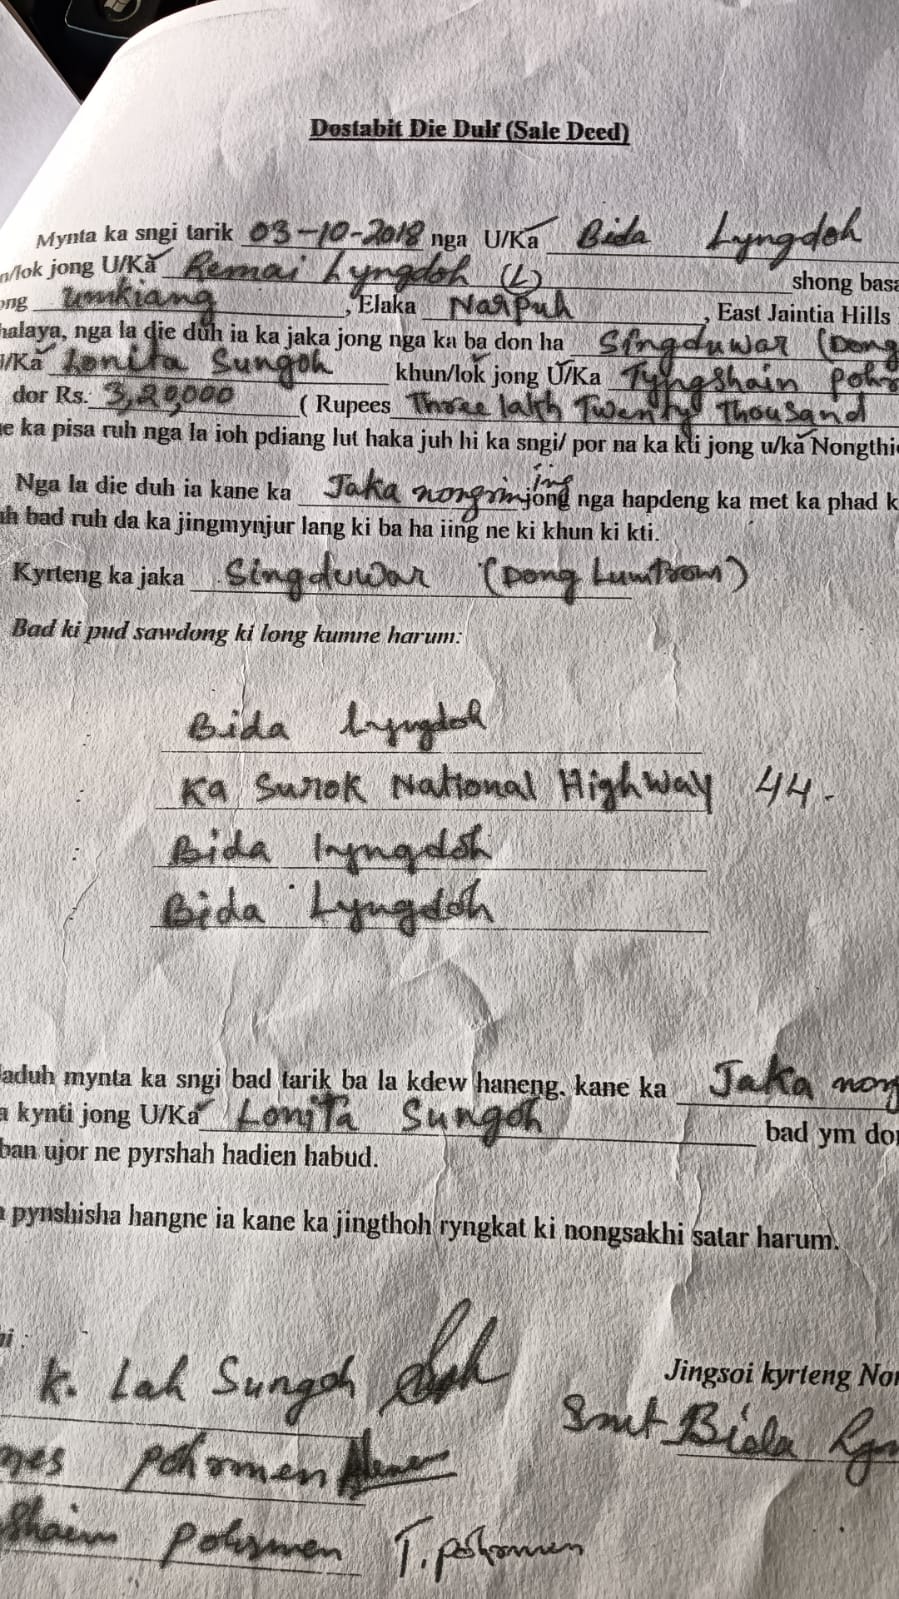 Dostabit Die Dulf (Sale Deed)
Mynta ka sngi tarik 03-10-2018 nga U/Ka Bida Lyngdoh
n/lok jong U/Ka Remai Lyngdoh (L) shong basa
ong Umkiang, Elaka Narpuh, East Jaintia Hills
halaya, nga la die duh ia ka jaka jong nga ka ba don ha Singduwar (Dong
/Ka Lonita Sungoh khun/lok jong U/Ka Tyngshain pohr
dor Rs. 3,20,000 ( Rupees Three lakh Twenty Thousand
e ka pisa ruh nga la ioh pdiang lut haka juh hi ka sngi/ por na ka kti jong u/ka Nongthi
Nga la die duh ia kane ka Jaka nongrim ing jong nga hapdeng ka met ka phad k
h bad ruh da ka jingmynjur lang ki ba ha iing ne ki khun ki kti.
Kyrteng ka jaka Singduwar (Dong Lumtrom)
Bad ki pud sawdong ki long kumne harum:
: Bida Lyngdoh
: Ka Surok National Highway 44.
: Bida lyngdoh
: Bida Lyngdoh
aduh mynta ka sngi bad tarik ba la kdew haneng. kane ka Jaka nong
a kynti jong U/Ka Lonita Sungoh bad ym don
ban ujor ne pyrshah hadien habud.
pynshisha hangne ia kane ka jingthoh ryngkat ki nongsakhi satar harum.
hi :
K. Lah Sungoh
Jingsoi kyrteng Non
Smt Bida Lyn
mes pohrmen
Shain pohrmen T. pohrmen